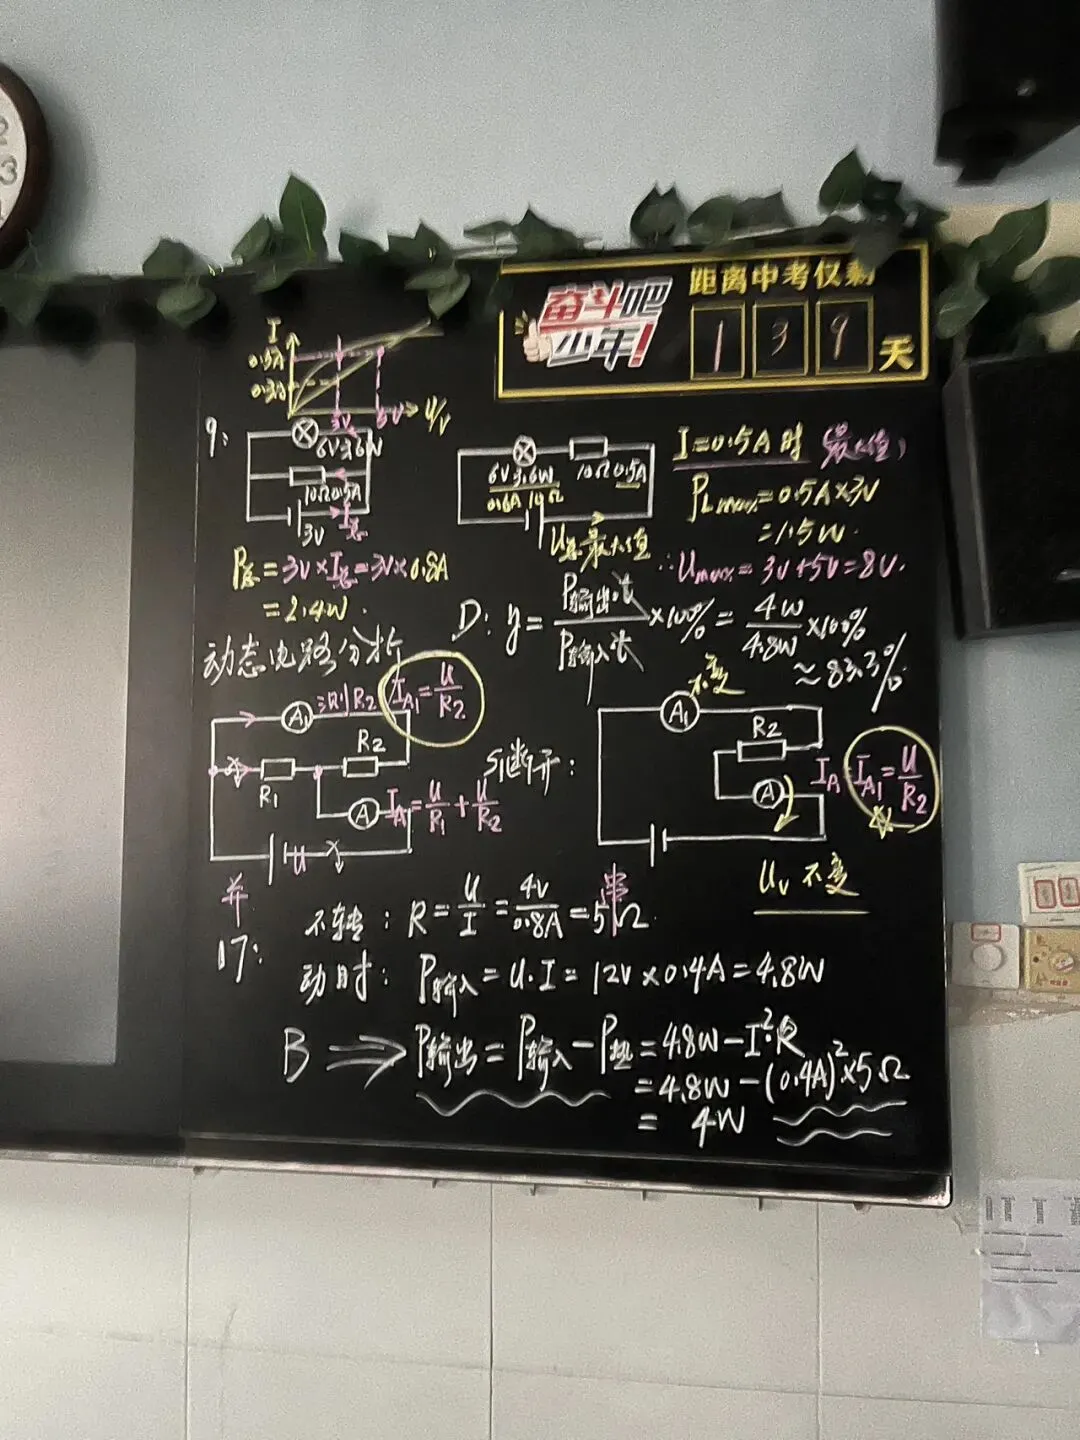 2
3
奋斗吧
少年!
距离中考仅剩
1 3 9 天
I
0.5A
0.3A
3V 5V U/V
9:
6V 3.6W
10Ω 0.5A
3V I总
P总=3V×I总=3V×0.8A
=2.4W.
6V 3.6W 10Ω 0.5A
0.6A 10Ω
U总最大值
I=0.5A时(最大值)
PLmax=0.5A×3V
=1.5W.
∴Umax=3V+5V=8V.
D: η=P输出·t/P输入t×100%=4W/4.8W×100%
≈83.3%
动态电路分析
A1 测R2 IA1=U/R2
R2
R1
A IA=U/R1+U/R2
U
并
S1断开:
A1 不变
R2
A IA=IA1=U/R2
串
UV 不变
17:
不转: R=U/I=4V/0.8A=5Ω
动时: P输入=U·I=12V×0.4A=4.8W
B P输出=P输入-P热=4.8W-I²·R
=4.8W-(0.4A)²×5Ω
= 4W